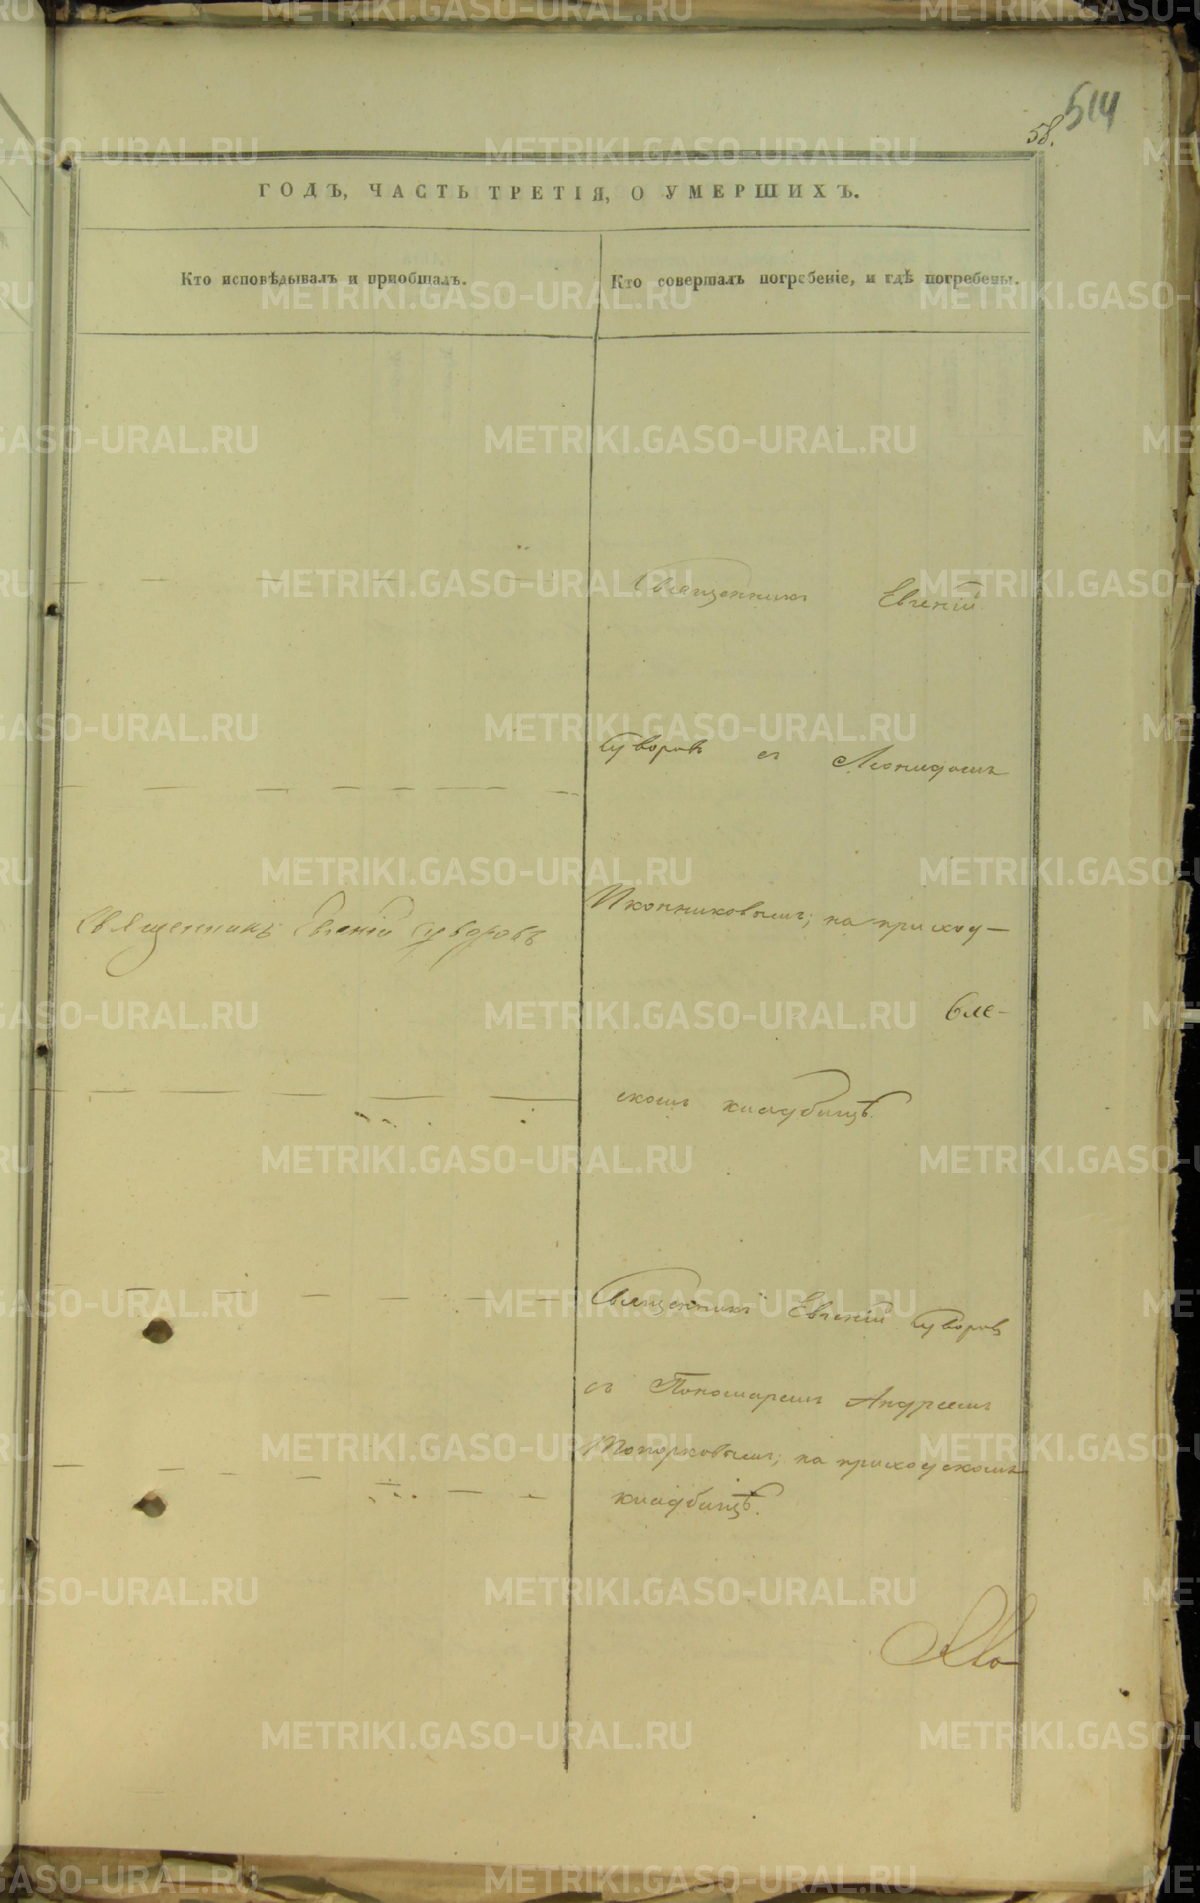 514
58.
ГОДЪ, ЧАСТЬ ТРЕТІЯ, О УМЕРШИХЪ.
Кто исповѣдывалъ и пріобщалъ.
Кто совершалъ погребеніе, и гдѣ погребены.
Священникъ Евгеній
Суворовъ съ Леонидомъ
Священникъ Евгеній Суворовъ
Иконниковымъ; на приход-
скомъ кладбищѣ.
Священникъ Евгеній Суворовъ
съ Пономаремъ Андреемъ
Топорковымъ; на приходскомъ
кладбищѣ.
METRIKI.GASO-URAL.RU